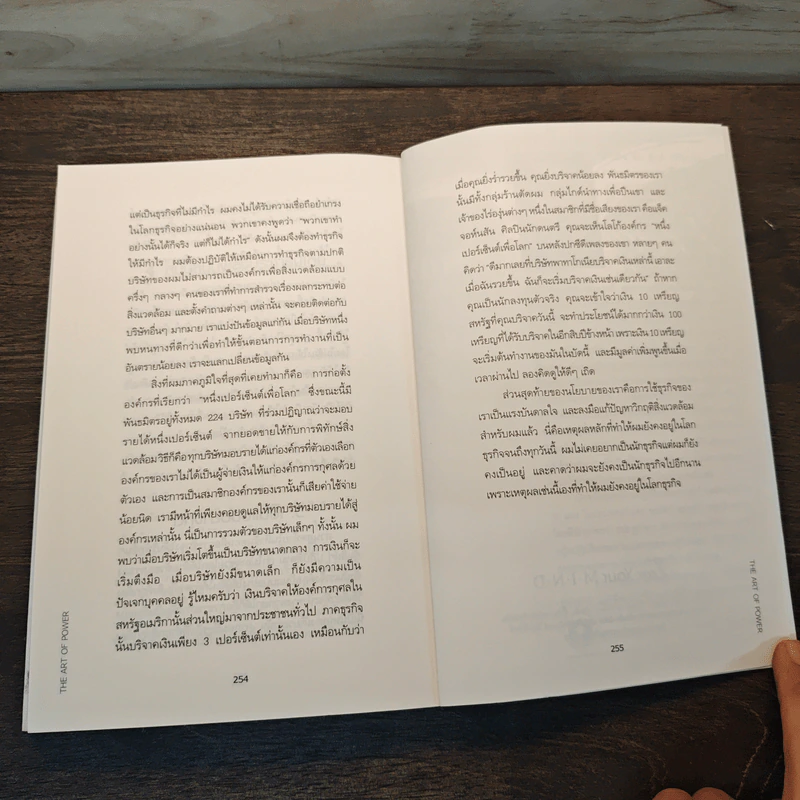 แต่เป็นธุรกิจที่ไม่มีกำไร ผมคงไม่ได้รับความเชื่อถือยำเกรง
ในโลกธุรกิจอย่างแน่นอน พวกเขาคงพูดว่า "พวกเขาทำ
อย่างนั้นได้ก็จริง แต่ก็ไม่ได้กำไร" ดังนั้นผมจึงต้องทำธุรกิจ
ให้มีกำไร ผมต้องปฏิบัติให้เหมือนการทำธุรกิจตามปกติ
บริษัทของผมไม่สามารถเป็นองค์กรเพื่อสิ่งแวดล้อมแบบ
ครึ่งๆ กลางๆ คนของเราที่ทำการสำรวจเรื่องผลกระทบต่อ
สิ่งแวดล้อม และตั้งคำถามต่างๆ เหล่านั้น จะคอยติดต่อกับ
บริษัทอื่นๆ มากมาย เราแบ่งปันข้อมูลแก่กัน เมื่อบริษัทหนึ่ง
พบหนทางที่ดีกว่าเพื่อทำให้ขั้นตอนการการทำงานที่เป็น
อันตรายน้อยลง เราจะแลกเปลี่ยนข้อมูลกัน
สิ่งที่ผมภาคภูมิใจที่สุดที่เคยทำมาก็คือ การก่อตั้ง
องค์กรที่เรียกว่า "หนึ่งเปอร์เซ็นต์เพื่อโลก" ซึ่งขณะนี้มี
พันธมิตรอยู่ทั้งหมด 224 บริษัท ที่ร่วมปฏิญาณว่าจะมอบ
รายได้หนึ่งเปอร์เซ็นต์ จากยอดขายให้กับการพิทักษ์สิ่ง
แวดล้อมวิธีก็คือทุกบริษัทมอบรายได้แก่องค์กรที่ตัวเองเลือก
องค์กรของเราไม่ได้เป็นผู้จ่ายเงินให้แก่องค์กรการกุศลด้วย
ตัวเอง และการเป็นสมาชิกองค์กรของเรานั้นก็เสียค่าใช้จ่าย
น้อยนิด เรามีหน้าที่เพียงคอยดูแลให้ทุกบริษัทมอบรายได้สู่
องค์กรเหล่านั้น นี่เป็นการรวมตัวของบริษัทเล็กๆ ทั้งนั้น ผม
พบว่าเมื่อบริษัทเริ่มโตขึ้นเป็นบริษัทขนาดกลาง การเงินก็จะ
เริ่มตึงมือ เมื่อบริษัทยังมีขนาดเล็ก ก็ยังมีความเป็น
ปัจเจกบุคคลอยู่ รู้ไหมครับว่า เงินบริจาคให้องค์การกุศลใน
สหรัฐอเมริกานั้นส่วนใหญ่มาจากประชาชนทั่วไป ภาคธุรกิจ
นั้นบริจาคเงินเพียง 3 เปอร์เซ็นต์เท่านั้นเอง เหมือนกับว่า
THE ART OF POWER
254
เมื่อคุณยิ่งร่ำรวยขึ้น คุณยิ่งบริจาคน้อยลง พันธมิตรของเรา
นั้นมีทั้งกลุ่มร้านตัดผม กลุ่มไกด์นำทางเพื่อปีนเขา และ
เจ้าของไร่องุ่นต่างๆ หนึ่งในสมาชิกที่มีชื่อเสียงของเรา คือแจ็ค
จอห์นสัน ศิลปินนักดนตรี คุณจะเห็นโลโก้องค์กร "หนึ่ง
เปอร์เซ็นต์เพื่อโลก" บนหลังปกซีดีเพลงของเขา หลายๆ คน
คิดว่า "ดีมากเลยที่บริษัทพาทาโกเนียบริจาคเงินเหล่านี้ เอาละ
เมื่อฉันรวยขึ้น ฉันก็จะเริ่มบริจาคเงินเช่นเดียวกัน" ถ้าหาก
คุณเป็นนักลงทุนตัวจริง คุณจะเข้าใจว่าเงิน 10 เหรียญ
สหรัฐที่คุณบริจาควันนี้ จะทำประโยชน์ได้มากกว่าเงิน 100
เหรียญที่ได้รับบริจาคในอีกสิบปีข้างหน้า เพราะเงิน 10 เหรียญ
จะเริ่มต้นทำงานของมันในบัดนี้ และมีมูลค่าเพิ่มพูนขึ้นเมื่อ
เวลาผ่านไป ลองคิดดูให้ดีๆ เถิด
ส่วนสุดท้ายของนโยบายของเราคือการใช้ธุรกิจของ
เราเป็นแรงบันดาลใจ และลงมือแก้ปัญหาวิกฤติสิ่งแวดล้อม
สำหรับผมแล้ว นี่คือเหตุผลหลักที่ทำให้ผมยังคงอยู่ในโลก
ธุรกิจจนถึงทุกวันนี้ ผมไม่เคยอยากเป็นนักธุรกิจแต่ผมก็ยัง
คงเป็นอยู่ และคาดว่าผมจะยังคงเป็นนักธุรกิจไปอีกนาน
เพราะเหตุผลเช่นนี้เองที่ทำให้ผมยังคงอยู่ในโลกธุรกิจ
THE ART OF POWER
255